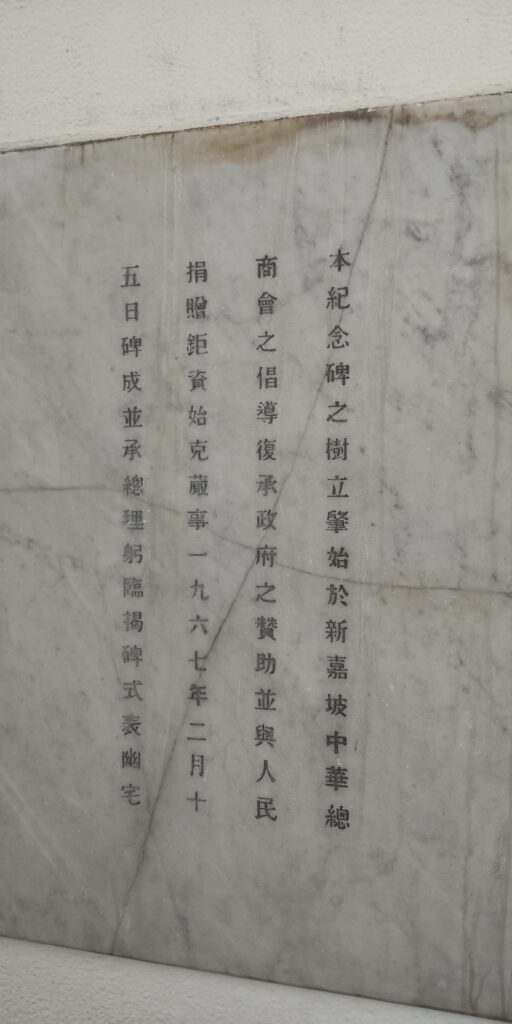 本紀念碑之樹立肇始於新嘉坡中華總
商會之倡導復承政府之贊助並與人民
捐贈鉅資始克蕆事一九六七年二月十
五日碑成並承總理躬臨揭碑式表幽宅